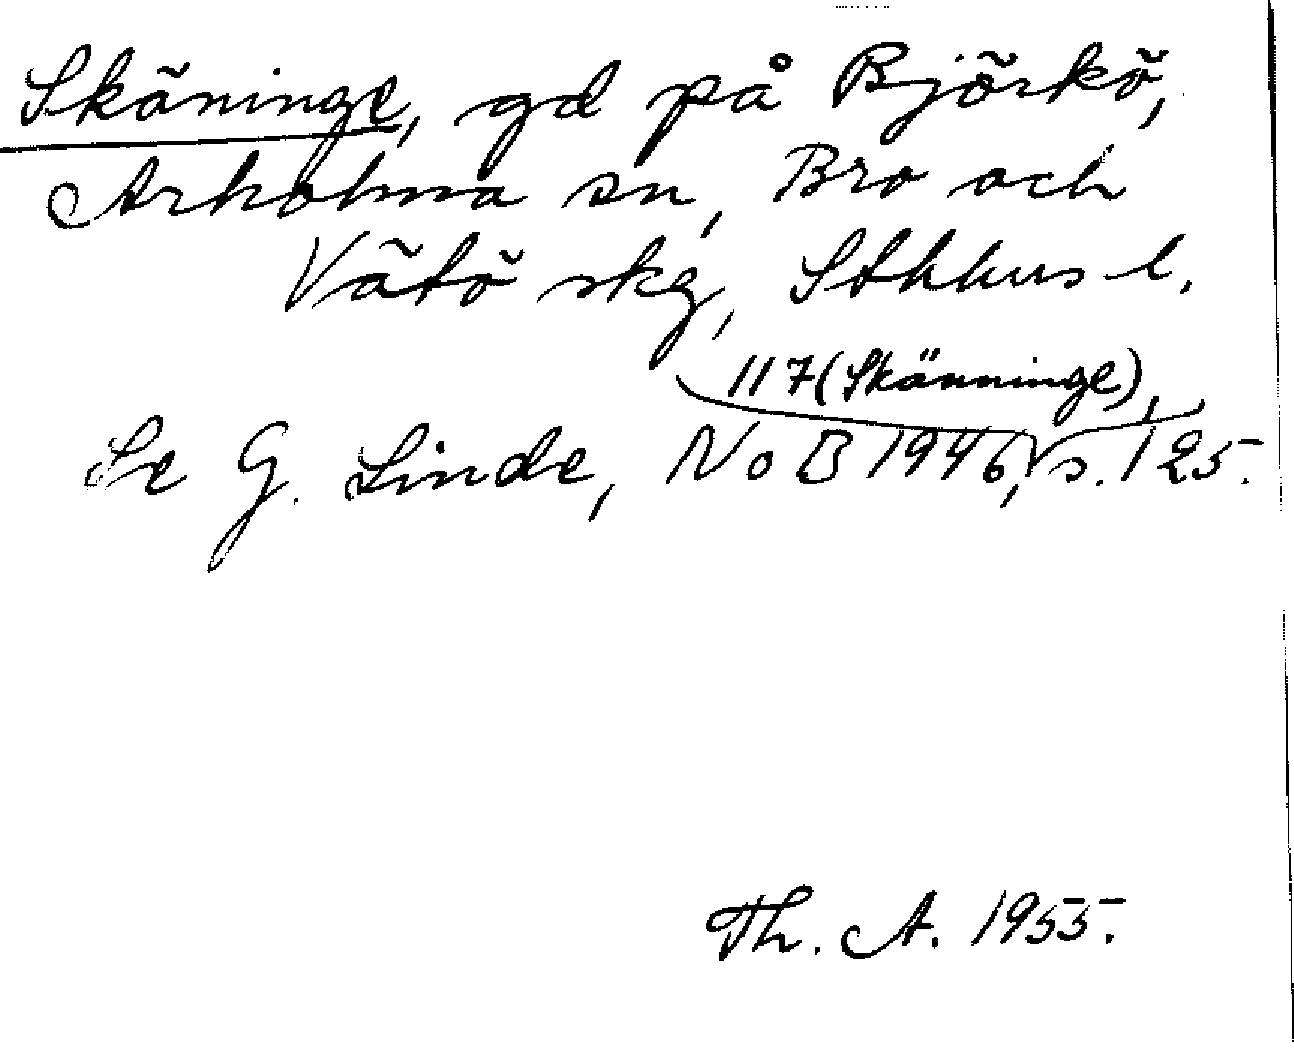 Skäninge, gd på Björkö,
Arholma sn, Bro och
Vätö skg, Sthlms l.
117 (Skänninge),
Se G. Linde, NoB 1946, s. 125.
Th. A. 1955.